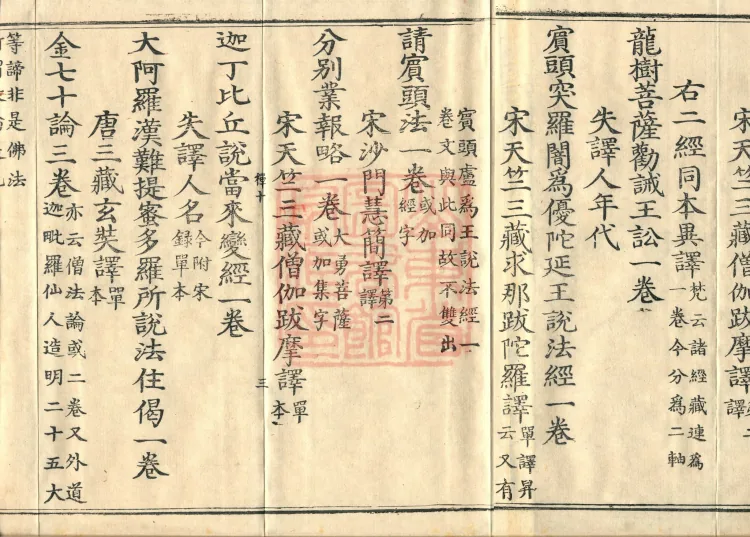 宋天竺三藏僧伽跋摩譯
右二經同本異譯梵云諸經藏連爲一卷今分爲二軸
龍樹菩薩勸誡王訟一卷
失譯人年代
賓頭突羅闍爲優陀延王說法經一卷
宋天竺三藏求那跋陀羅譯單譯昇云又有
賓頭盧爲王說法經一
卷文與此同故不雙出
請賓頭法一卷或加經字
宋沙門慧簡譯第二譯
分別業報略一卷大勇菩薩或加集字
宋天竺三藏僧伽跋摩譯單本
三
迦丁比丘說當來變經一卷
失譯人名今附宋錄單本
大阿羅漢難提蜜多羅所說法住偈一卷
唐三藏玄奘譯單本
金七十論三卷亦云僧法論或二卷又外道迦毗羅仙人造明二十五大
等諦非是佛法